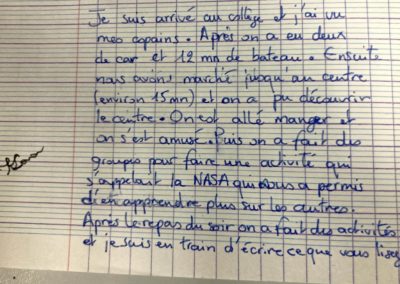 Je suis arrivé au collège et j'ai vu
mes copains. Après on a eu deux
de car et 12 mn de bateau. Ensuite
nous avons marché jusqu'au centre
(environ 15 mn) et on a pu découvrir
le centre. On est allé manger et
on s'est amusé. Puis on a fait des
groupes pour faire une activité qui
s'appelait la NASA qui nous a permis
d'en apprendre plus sur les autres.
Après le repas du soir on a fait des activités
et je suis en train d'écrire ce que vous lisez